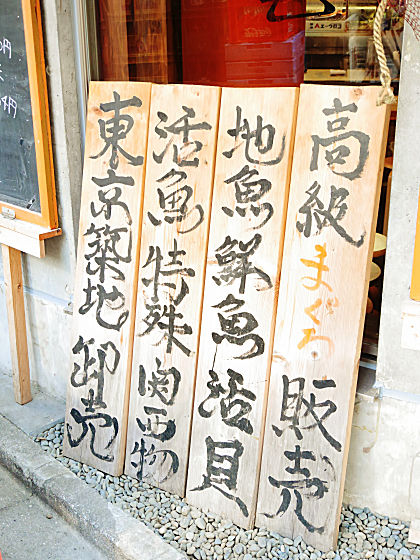 高級まぐろ販売
地魚鮮魚活貝
活魚特殊関西物
東京築地卸売